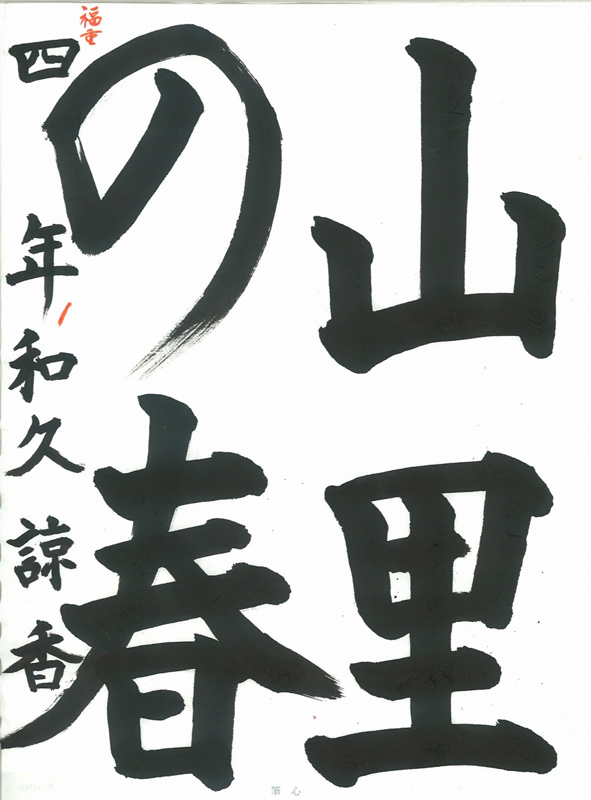 山里
の春
四年 和久諒香
福重
筆心